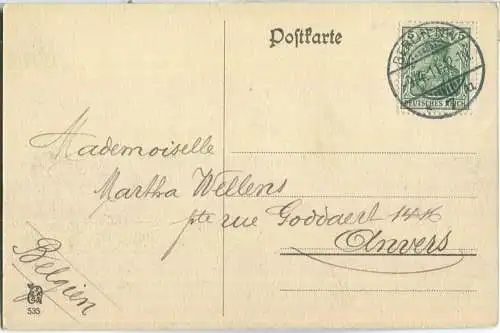 Postkarte
DEUTSCHES REICH
Mademoiselle
Martha Wellens
pte rue Goddaert 14
Anvers
Belgien
535